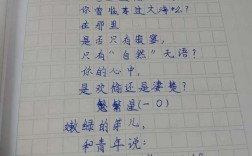 你曾临本过大海么?
在那里
是否只有寂寥,
只有“自然”无语?
你的心中,
是欢愉还是凄楚?
繁星(一〇)
嫩绿的芽儿,
和青年说: